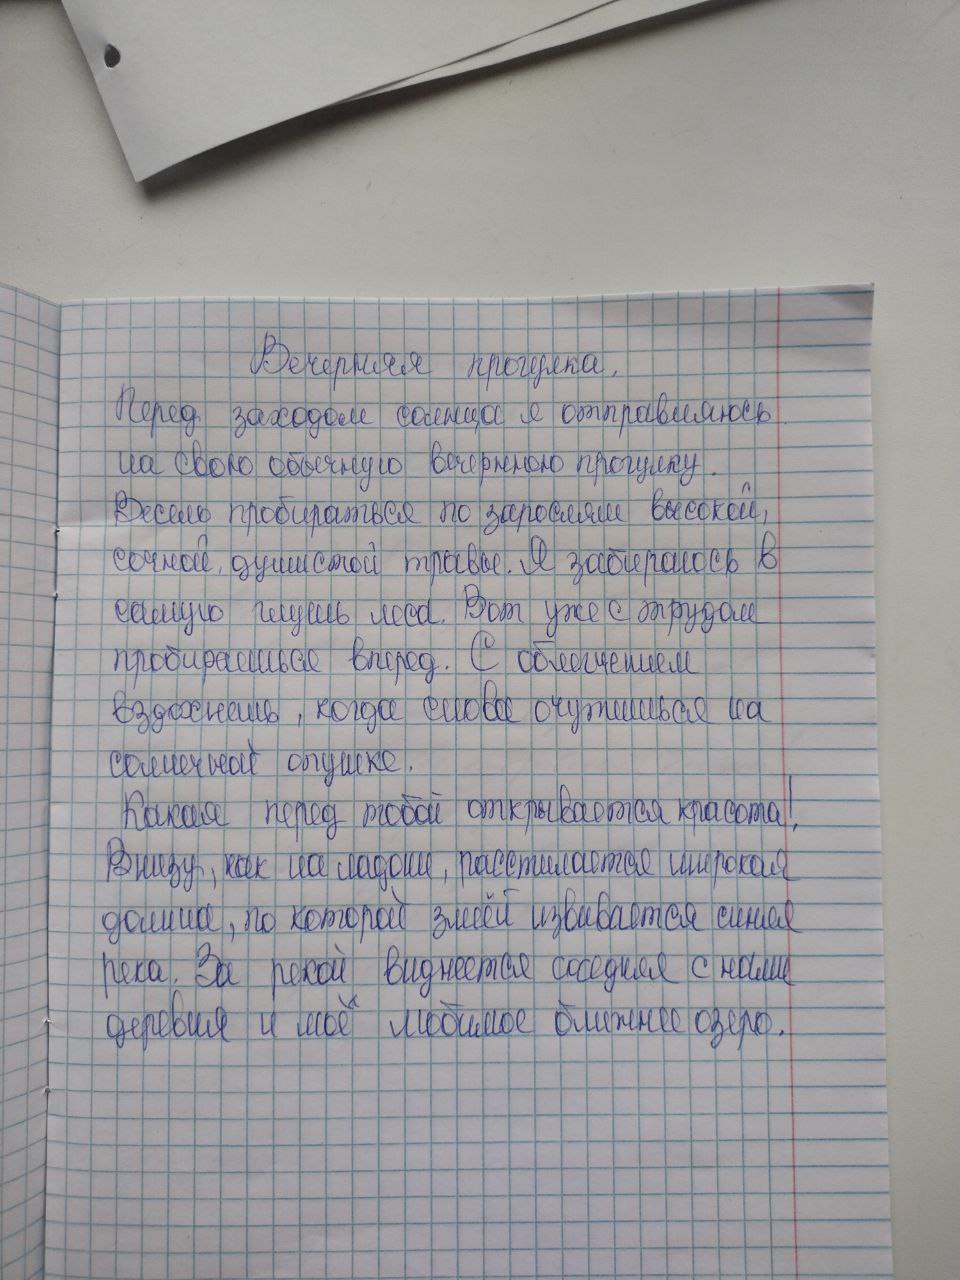 Вечерняя прогулка.
Перед заходом солнца я отправляюсь
на свою обычную вечернюю прогулку.
Весело пробираться по зарослям высокой,
сочной, душистой травы. Я забираюсь в
самую глушь леса. Вот уже с трудом
пробираешься вперед. С облегчением
вздохнешь, когда снова очутишься на
солнечной опушке.
Какая перед тобой открывается красота!
Внизу, как на ладони, расстилается широкая
долина, по которой змеёй извивается синяя
река. За рекой виднеется соседняя с нами
деревня и моё любимое ближнее озеро.